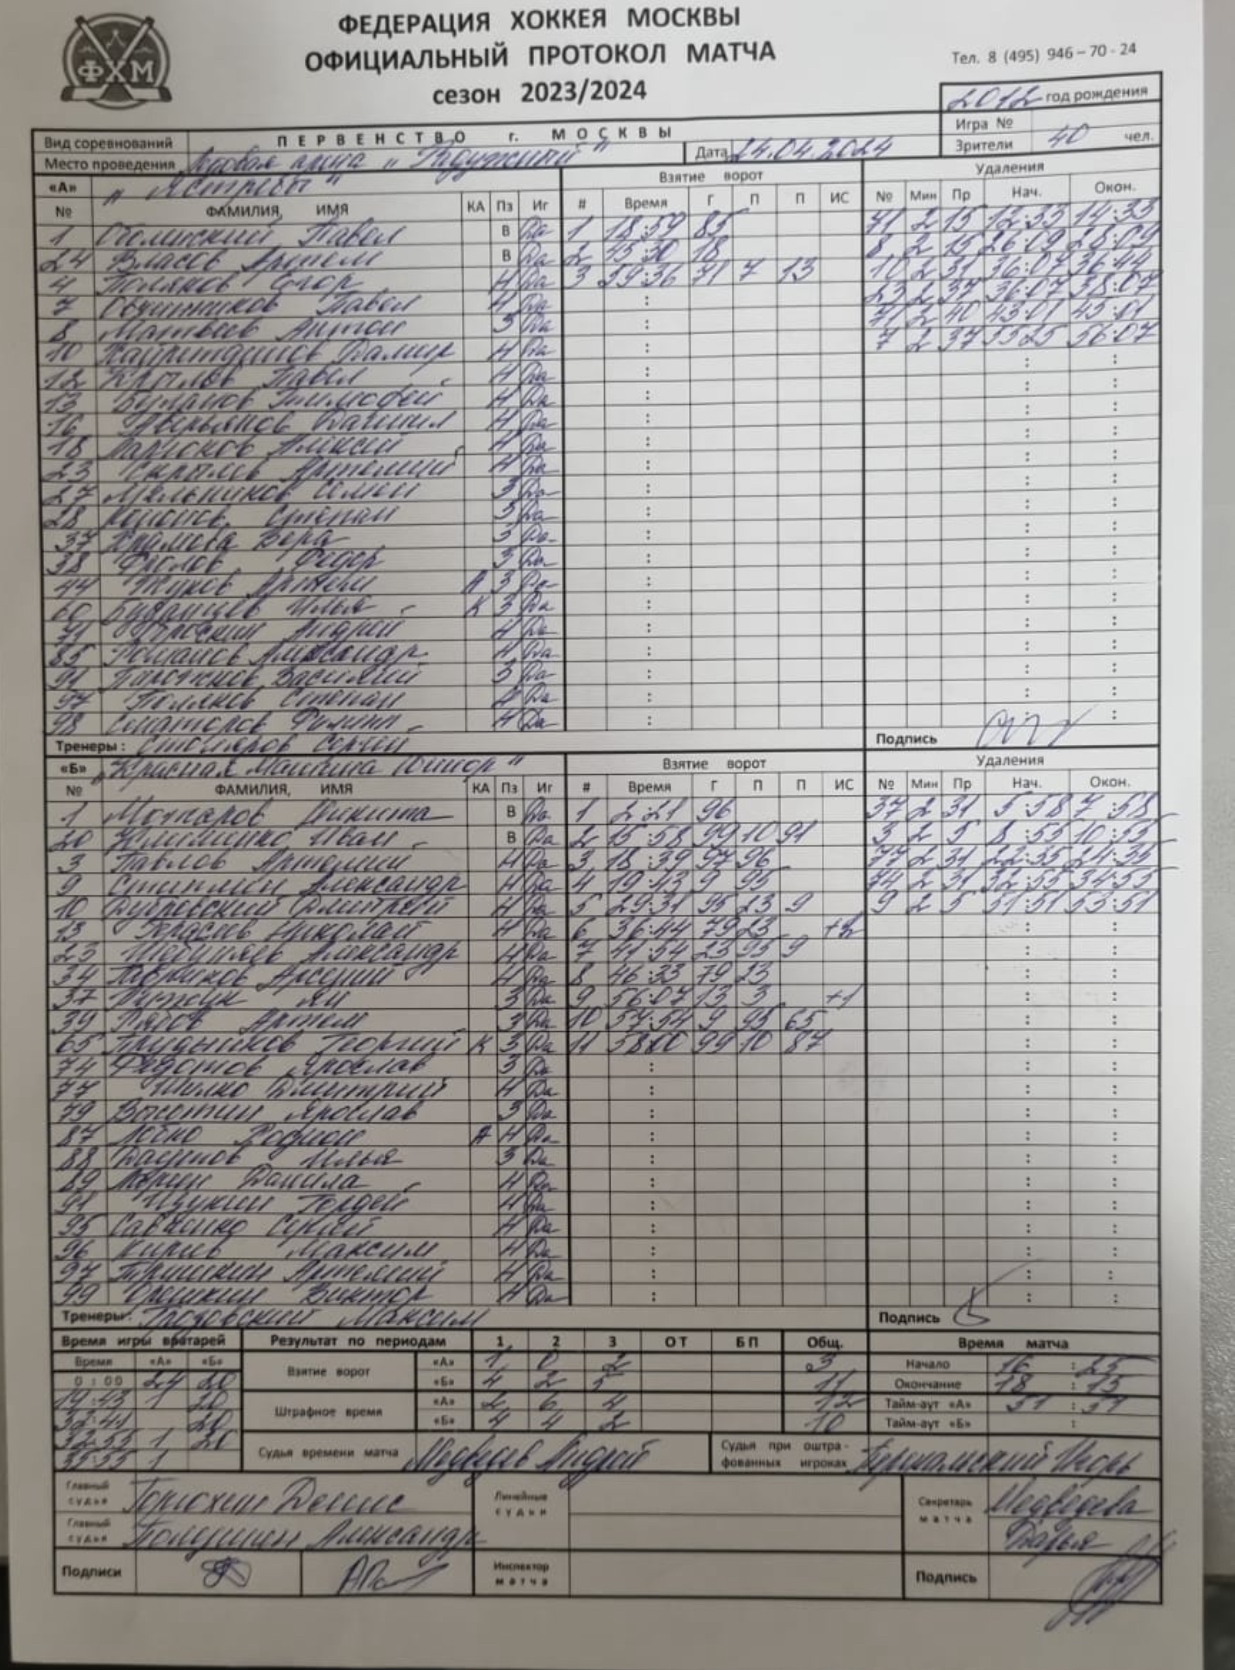 ФЕДЕРАЦИЯ ХОККЕЯ МОСКВЫ
ОФИЦИАЛЬНЫЙ ПРОТОКОЛ МАТЧА
сезон 2023/2024
Тел. 8 (495) 946 – 70 - 24
ФХМ
2012 год рождения
Вид соревнований ПЕРВЕНСТВО г. МОСКВЫ Игра №
Место проведения Ледовая арена "Радужный" Дата 24.04.2024 Зрители 40 чел.
«А» "Ястребы" Взятие ворот Удаления
№ ФАМИЛИЯ, ИМЯ КА Пз Иг # Время Г П П ИС № Мин Пр Нач. Окон.
1 Оболенский Павел В Да 1 18:59 85 71 2 15 12:33 14:33
24 Власов Артем В Да 2 45:30 18 8 2 15 26:09 28:09
4 Поляков Егор Н Да 3 59:36 71 7 13 10 2 31 36:07 36:44
7 Овчинников Павел Н Да : 23 2 34 36:07 38:07
8 Матвеев Антон З Да : 71 2 40 43:01 45:01
10 Дамир Н Да : 7 2 37 55:25 56:07
12 Крылов Павел Н Да : : :
13 Тимофей Н Да : : :
16 Даниил Н Да : : :
18 Ларионов Алексей Н Да : : :
23 Артемий Н Да : : :
27 Мельников Семен З Да : : :
28 Степан З Да : : :
37 Вера З Да : : :
38 Фролов Федор З Да : : :
44 Жуков Артем А З Да : : :
60 Илья К З Да : : :
71 Андрей Н Да : : :
85 Романов Александр Н Да : : :
91 Василий З Да : : :
97 Поляков Степан Да : : :
98 Сенаторов Филипп Н Да : : :
Тренеры: Столяров Сергей Подпись
«Б» "Красная Машина Юниор" Взятие ворот Удаления
№ ФАМИЛИЯ, ИМЯ КА Пз Иг # Время Г П П ИС № Мин Пр Нач. Окон.
1 Никита В Да 1 2:21 96 37 2 31 5:58 7:58
20 Клименко Иван В Да 2 15:58 99 10 91 3 2 5 8:55 10:55
3 Павлов Артемий Н Да 3 18:39 97 96 77 2 31 22:35 24:35
9 Александр Н Да 4 19:43 9 95 74 2 31 32:55 34:55
10 Дубровский Дмитрий Н Да 5 29:31 95 23 9 9 2 5 51:51 53:51
13 Герасев Николай Н Да 6 36:44 79 23 +2 : :
23 Александр Н Да 7 41:54 23 95 9 : :
34 Арсений Н Да 8 46:33 79 23 : :
37 Ян З Да 9 56:07 13 3 +1 : :
39 Рябов Артем З Да 10 57:54 9 95 65 : :
65 Трудников Георгий К З Да 11 58:00 99 10 87 : :
74 Федотов Ярослав З Да : : :
77 Шилко Дмитрий Н Да : : :
79 Высотин Ярослав З Да : : :
87 Родион А Н Да : : :
88 Илья З Да : : :
89 Данила Н Да : : :
91 Гордей Н Да : : :
95 Савченко Сергей Н Да : : :
96 Киреев Максим Н Да : : :
97 Артемий Н Да : : :
99 Орешкин Виктор Н Да : : :
Тренеры: Максим Подпись
Время игры вратарей Результат по периодам 1 2 3 ОТ БП Общ. Время матча
Время «А» «Б» Взятие ворот «А» 1 0 2 3 Начало 16 : 25
0 : 00 24 20 «Б» 4 2 5 11 Окончание 18 : 15
19:43 1 20 Штрафное время «А» 2 6 4 12 Тайм-аут «А» 51 : 51
20 «Б» 4 4 2 10 Тайм-аут «Б» :
1 20 Судья времени матча Медведев Андрей Судья при оштрафованных игроках Игорь
1
Главный судья Горюхин Денис Линейные судьи Секретарь матча Медведева
Главный судья Полушин Александр Дарья
Подписи Инспектор матча Подпись